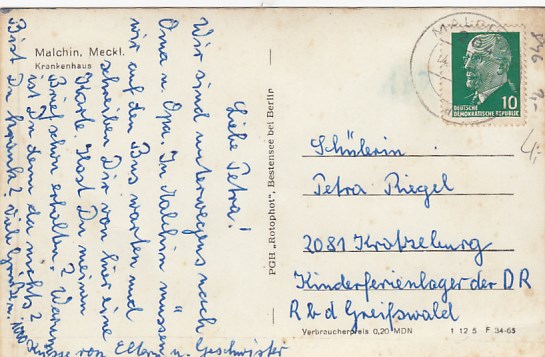 Malchin, Meckl.
Krankenhaus
Liebe Petra!
Wir sind unterwegs nach
Oma u. Opa. In Malchin müssen
wir auf den Bus warten und
schreiben Dir von hier eine
Karte. Hast Du meinen
Brief schon erhalten? Warum
ist Du denn da nichts?
Bist Du krank? Viele
Grüsse von Eltern u. Geschwister
PGH „Rotophot", Bestensee bei Berlin
DEUTSCHE
DEMOKRATISCHE REPUBLIK
10
Schülerin:
Petra Riegel
2081 Kratzeburg
Kinderferienlager der DR
Rbd Greifswald
Verbraucherpreis 0,20 MDN 1 12 5 F 34-65